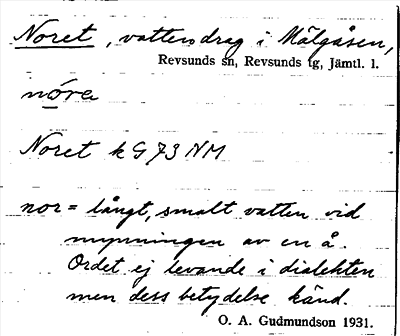 Noret, vattendrag i Mälgåsen,
Revsunds sn, Revsunds tg, Jämtl. l.
nórɐ
Noret k G 73 NM
nor = långt, smalt vatten vid
mynningen av en å.
Ordet ej levande i dialekten
men dess betydelse känd.
O. A. Gudmundson 1931.